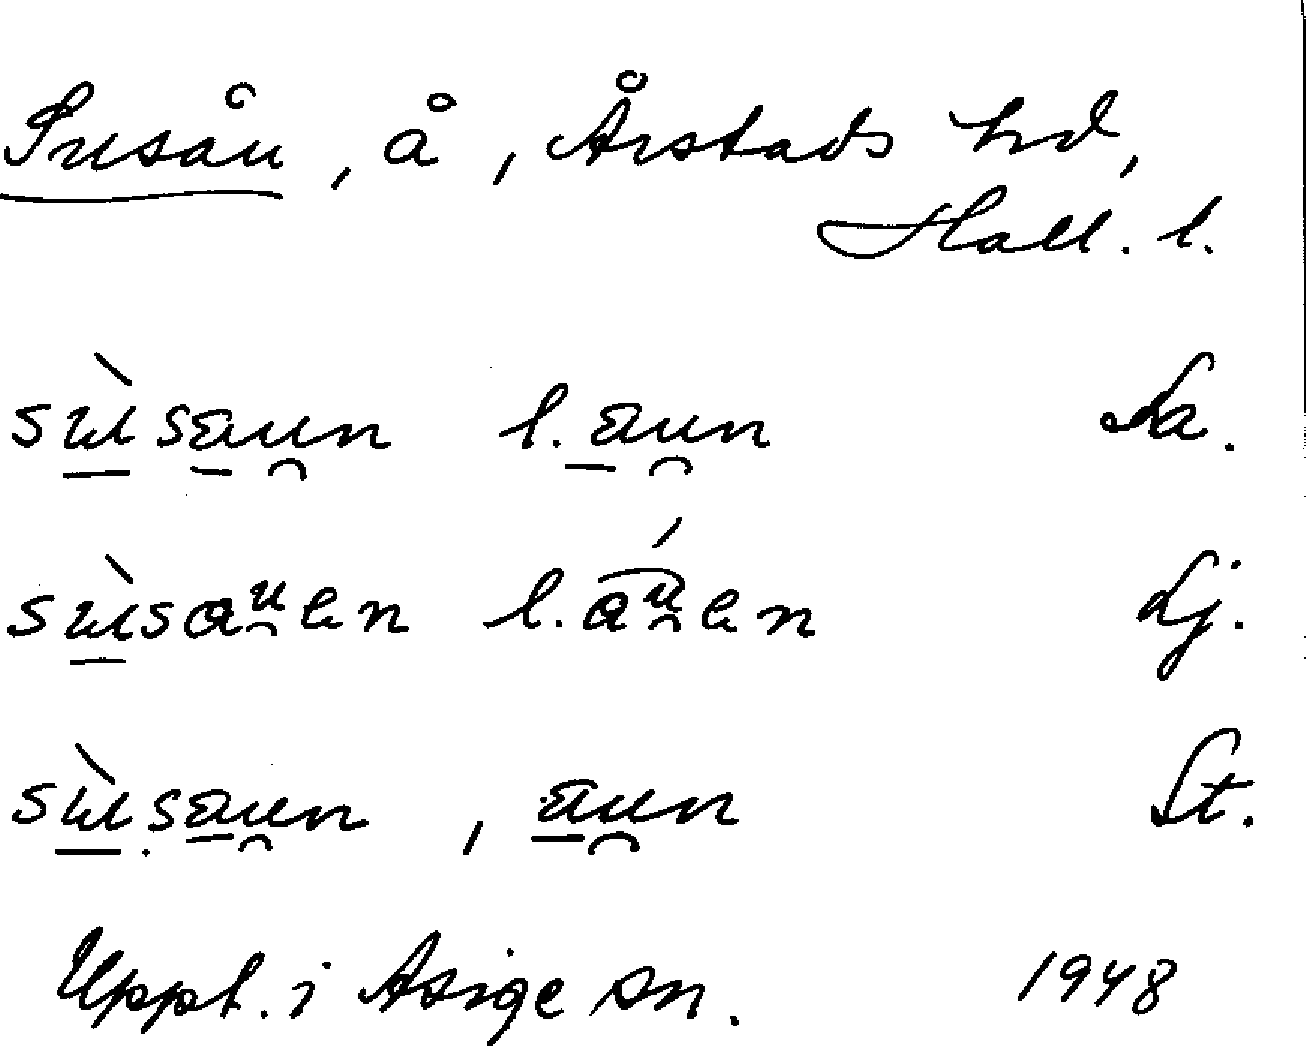 Susån, å, Årstads hd,
Hall. l.
sùsau̯n l. au̯n Sa.
sùsaᵘ̯en l. áᵘ̯en Lj.
sùsau̯n, au̯n St.
Uppt. i Asige sn. 1948